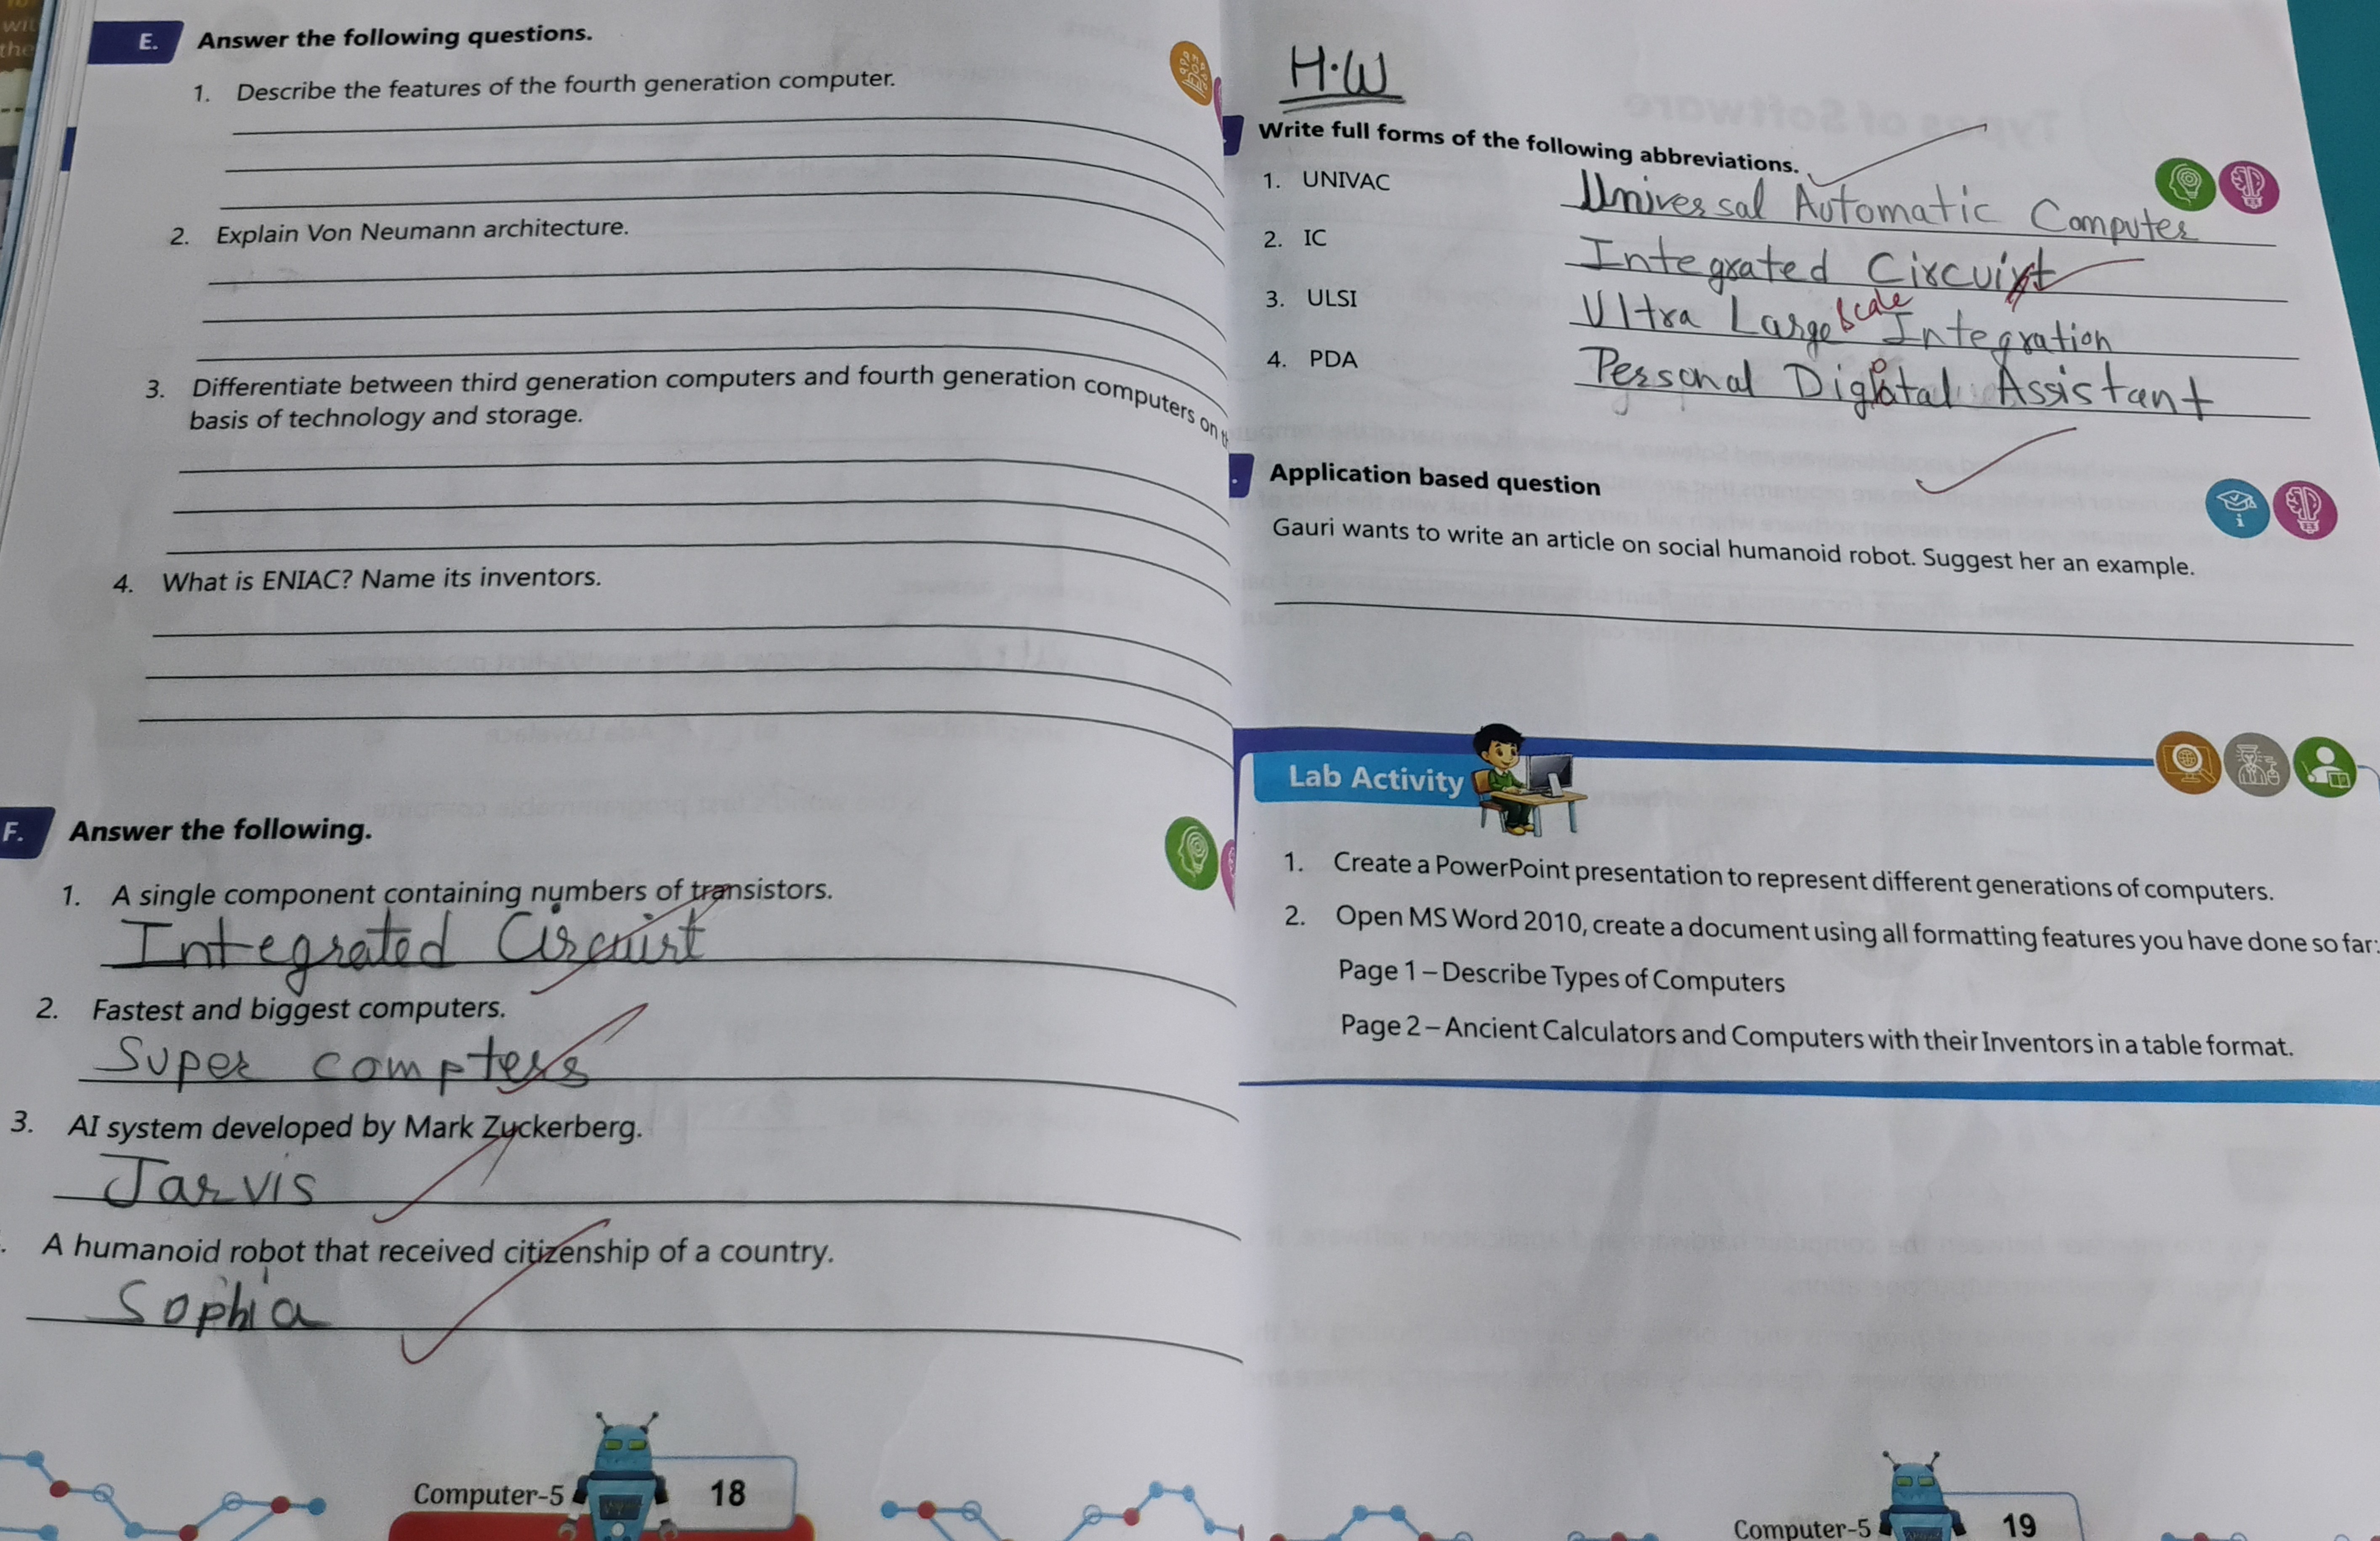 E. Answer the following questions.
1. Describe the features of the fourth generation computer.
2. Explain Von Neumann architecture.
3. Differentiate between third generation computers and fourth generation computers on
basis of technology and storage.
4. What is ENIAC? Name its inventors.
F. Answer the following.
1. A single component containing numbers of transistors.
Integrated Circuirt
2. Fastest and biggest computers.
Super compters
3. AI system developed by Mark Zuckerberg.
Jarvis
. A humanoid robot that received citizenship of a country.
Sophia
Computer-5 18
H.W
Write full forms of the following abbreviations.
1. UNIVAC Universal Automatic Computer
2. IC Integrated Circuit
3. ULSI Ultra Large scale Integration
4. PDA Personal Digital Assistant
Application based question
Gauri wants to write an article on social humanoid robot. Suggest her an example.
Lab Activity
1. Create a PowerPoint presentation to represent different generations of computers.
2. Open MS Word 2010, create a document using all formatting features you have done so far:
Page 1 – Describe Types of Computers
Page 2 – Ancient Calculators and Computers with their Inventors in a table format.
Computer-5 19